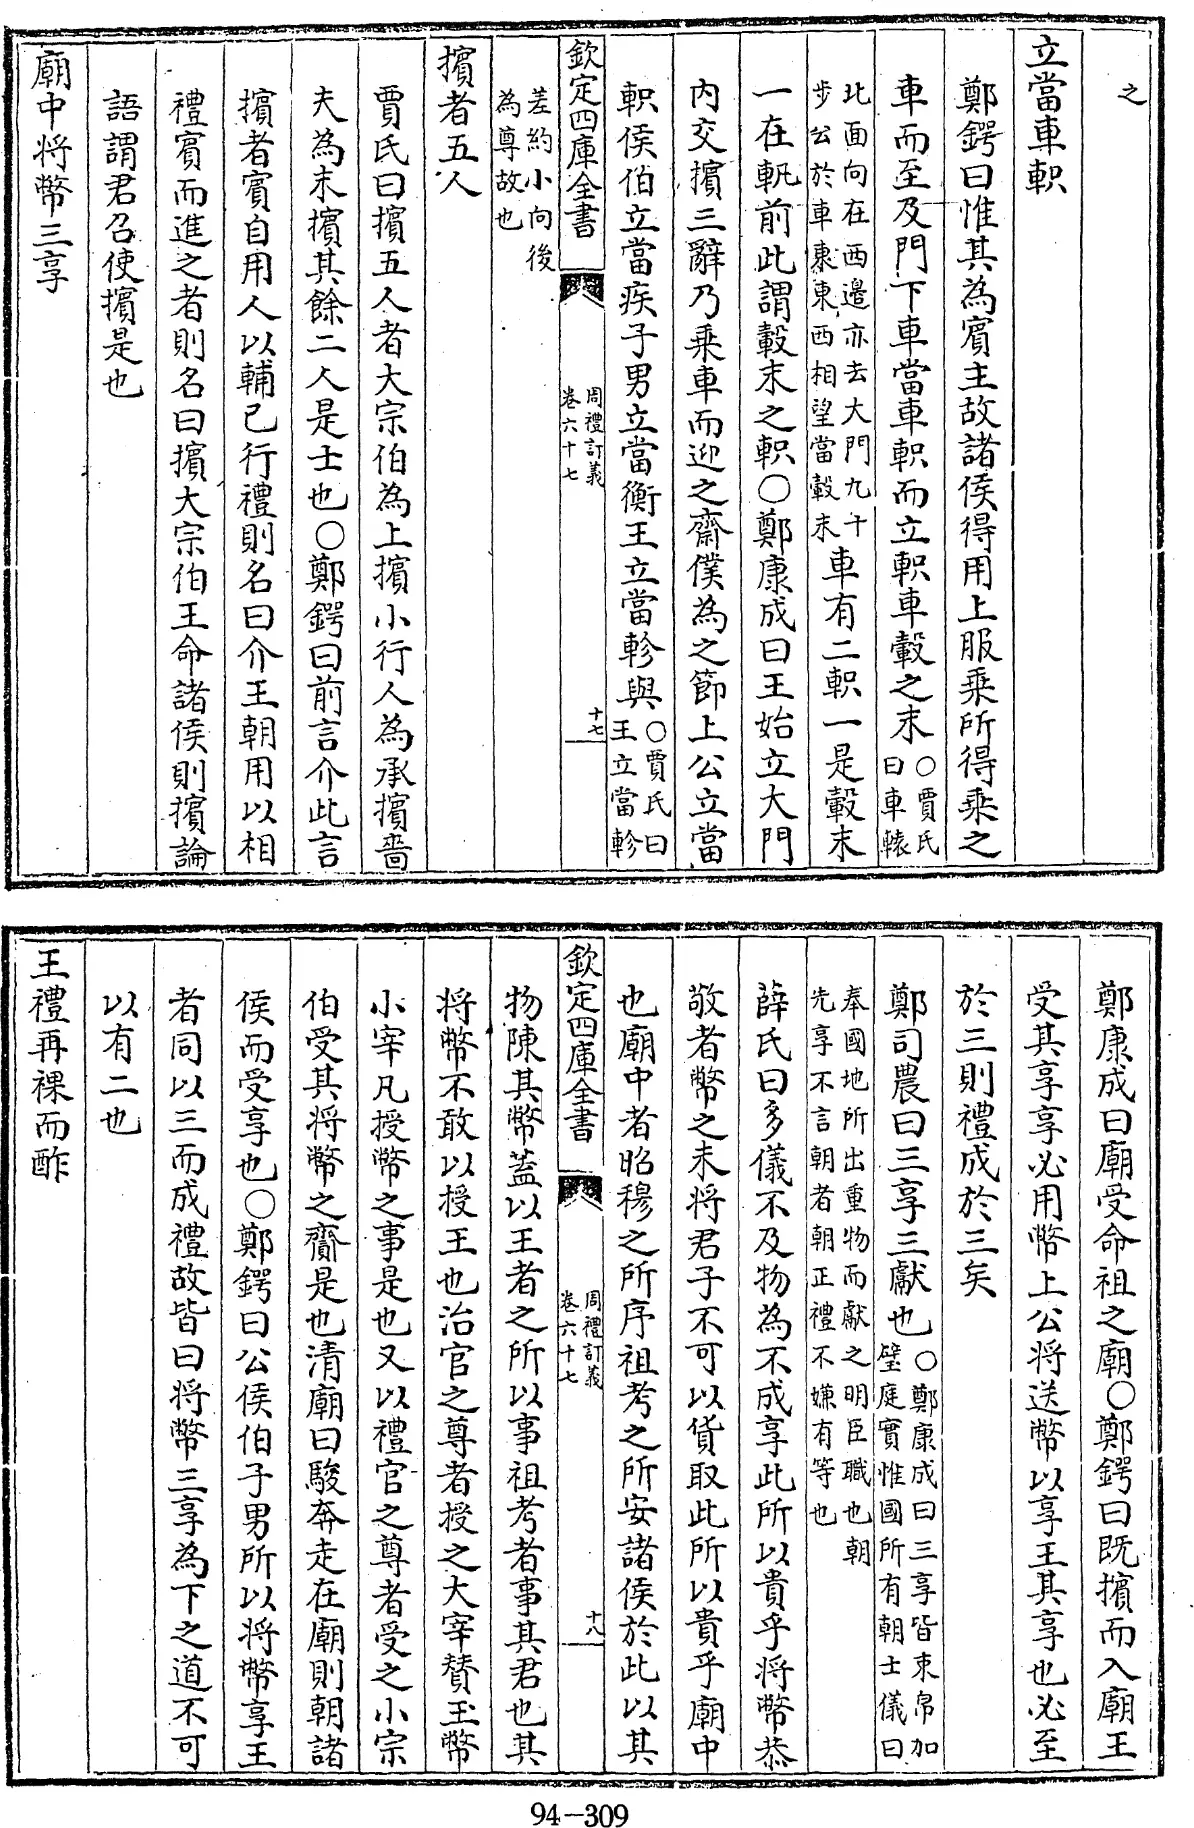 之
立當車軹
鄭鍔曰惟其為賓主故諸侯得用上服乘所得乘之
車而至及門下車當車軹而立軹車轂之末○賈氏曰車轅
此面向在西邊亦去大門九十步公於車東東西相望當轂末車有二軹一是轂末
一在軓前此謂轂末之軹○鄭康成曰王始立大門
内交擯三辭乃乘車而迎之齋僕為之節上公立當
軹侯伯立當疾子男立當衡王立當軫與○賈氏曰王立當軫
欽定四庫全書 周禮訂義卷六十七 十七
差約小向後為尊故也
擯者五人
賈氏曰擯五人者大宗伯為上擯小行人為承擯嗇
夫為末擯其餘二人是士也○鄭鍔曰前言介此言
擯者賓自用人以輔己行禮則名曰介王朝用以相
禮賓而進之者則名曰擯大宗伯王命諸侯則擯論
語謂君召使擯是也
廟中将幣三享
鄭康成曰廟受命祖之廟○鄭鍔曰既擯而入廟王
受其享享必用幣上公將送幣以享王其享也必至
於三則禮成於三矣
鄭司農曰三享三獻也○鄭康成曰三享皆束帛加璧庭實惟國所有朝士儀曰
奉國地所出重物而獻之明臣職也朝先享不言朝者朝正禮不嫌有等也
薛氏曰多儀不及物為不成享此所以貴乎將幣恭
敬者幣之未將君子不可以貨取此所以貴乎廟中
也廟中者昭穆之所序祖考之所安諸侯於此以其
欽定四庫全書 周禮訂義卷六十七 十八
物陳其幣蓋以王者之所以事祖考者事其君也其
將幣不敢以授王也治官之尊者授之大宰贊玉幣
小宰凡授幣之事是也又以禮官之尊者受之小宗
伯受其将幣之齎是也清廟曰駿奔走在廟則朝諸
侯而受享也○鄭鍔曰公侯伯子男所以將幣享王
者同以三而成禮故皆曰將幣三享為下之道不可
以有二也
王禮再祼而酢
94-309